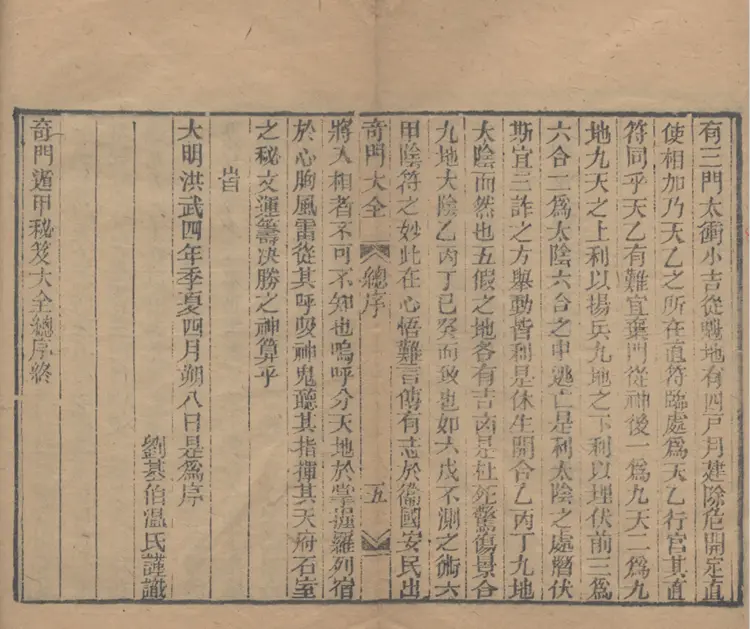 有三門太衝小吉從魁地有四戸月建除危開定直
使相加乃天乙之所在直符臨處爲天乙行宮其直
符同乎天乙有難宜棄門從神後一爲九天二爲九
地九天之上利以揚兵九地之下利以埋伏前三爲
六合二爲太陰六合之中逃亡是利太陰之處潛伏
斯宜三詐之方舉動皆利是休生開合乙丙丁九地
太陰而然也五假之地各有吉凶是杜死驚傷景合
九地太陰乙丙丁己癸而致也如六戊不測之術六
甲陰符之妙此在心悟難言傳有志於衞國安民出
奇門大全 總序 五
將入相者不可不知也嗚呼分天地於掌握羅列宿
於心胸風雷從其呼吸神鬼聽其指揮其天府石室
之秘文運籌决勝之神算乎
旹
大明洪武四年季夏四月朔八日是爲序
劉基伯溫氏謹識
奇門遁甲秘笈大全總序終